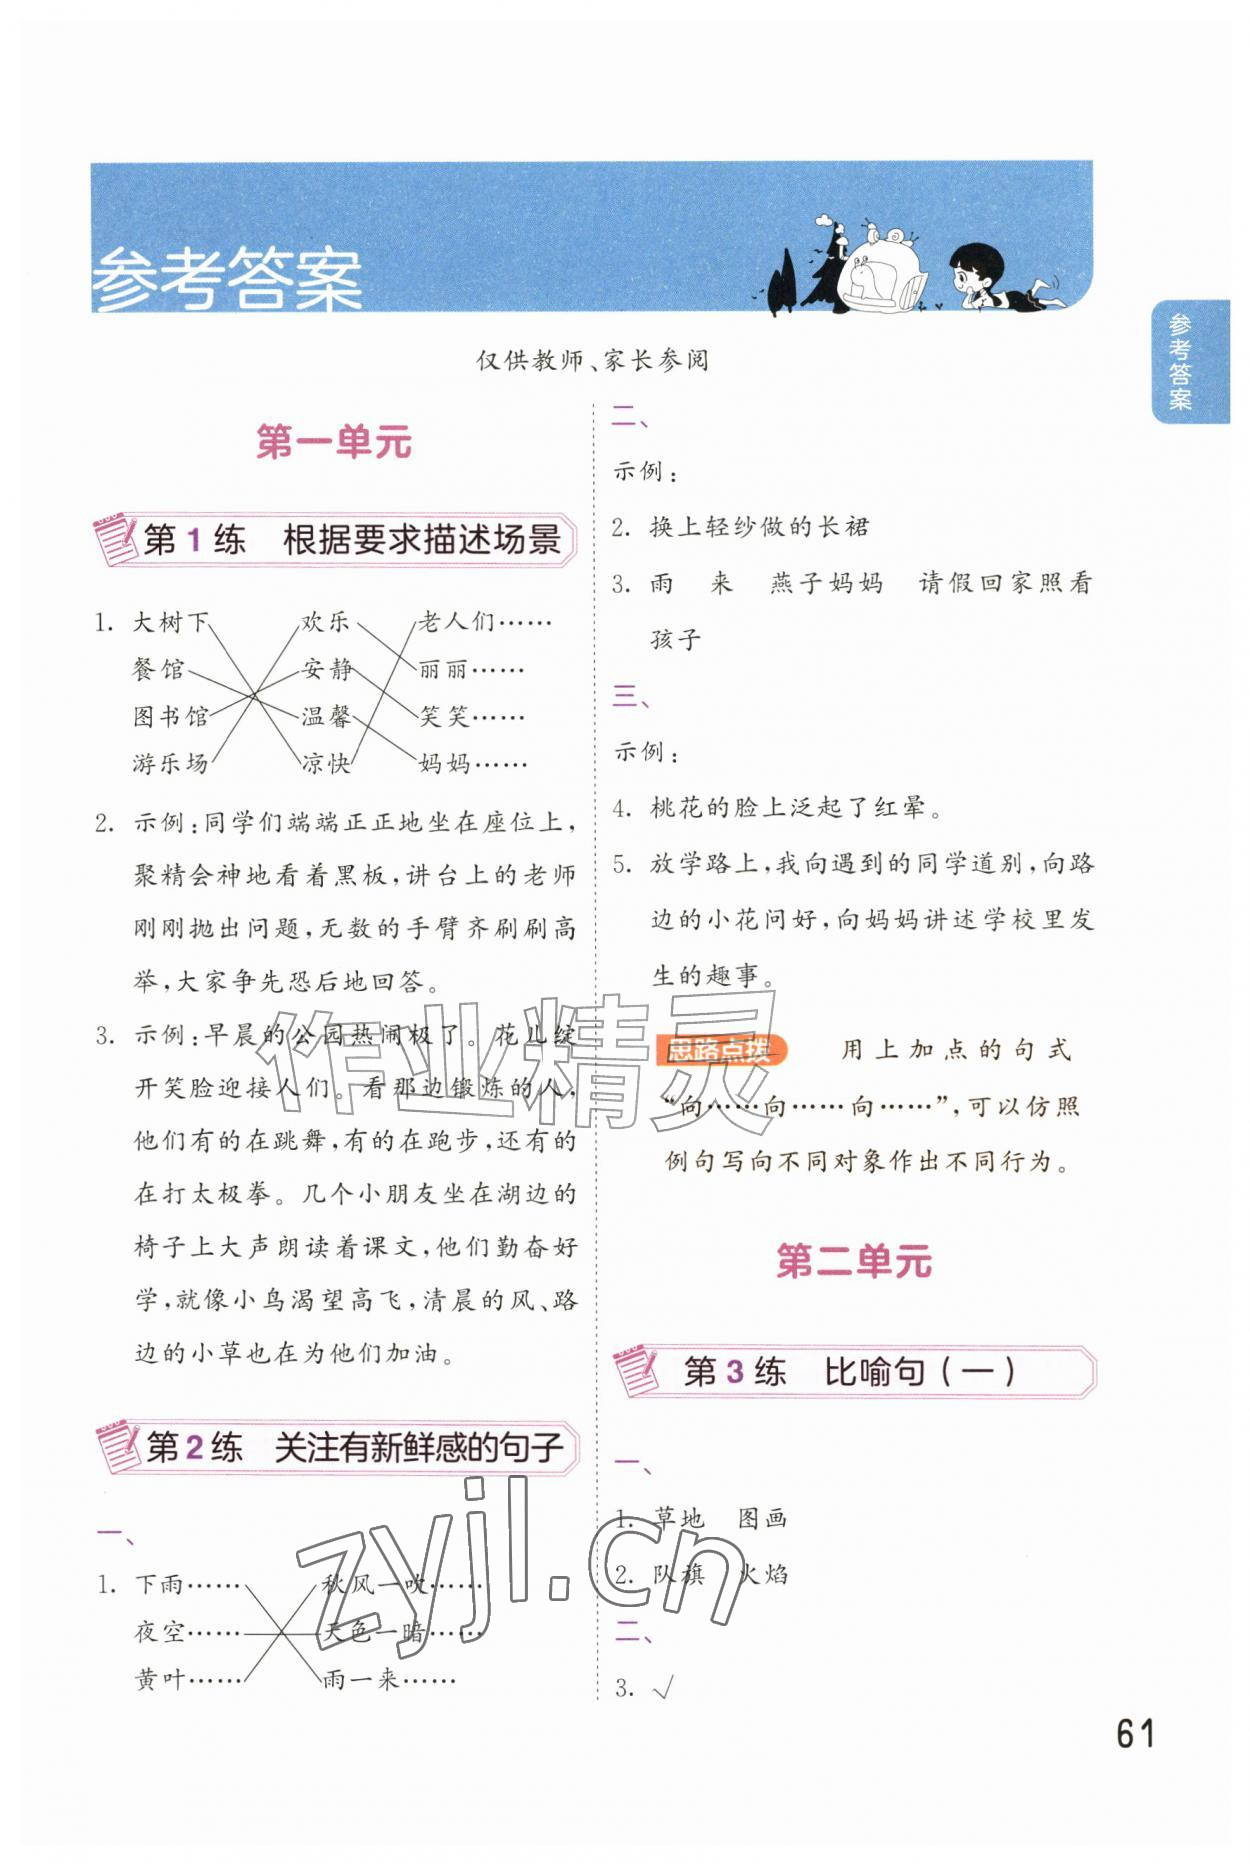 参考答案
参考答案
仅供教师、家长参阅
第一单元
第1练 根据要求描述场景
1. 大树下 欢乐 老人们……
餐馆 安静 丽丽……
图书馆 温馨 笑笑……
游乐场 凉快 妈妈……
2. 示例:同学们端端正正地坐在座位上,
聚精会神地看着黑板,讲台上的老师
刚刚抛出问题,无数的手臂齐刷刷高
举,大家争先恐后地回答。
3. 示例:早晨的公园热闹极了。花儿绽
开笑脸迎接人们。看那边锻炼的人,
他们有的在跳舞,有的在跑步,还有的
在打太极拳。几个小朋友坐在湖边的
椅子上大声朗读着课文,他们勤奋好
学,就像小鸟渴望高飞,清晨的风、路
边的小草也在为他们加油。
第2练 关注有新鲜感的句子
一、
1. 下雨…… 秋风一吹……
夜空…… 天色一暗……
黄叶…… 雨一来……
二、
示例:
2. 换上轻纱做的长裙
3. 雨 来 燕子妈妈 请假回家照看
孩子
三、
示例:
4. 桃花的脸上泛起了红晕。
5. 放学路上,我向遇到的同学道别,向路
边的小花问好,向妈妈讲述学校里发
生的趣事。
思路点拨 用上加点的句式
“向……向……向……”,可以仿照
例句写向不同对象作出不同行为。
第二单元
第3练 比喻句(一)
一、
1. 草地 图画
2. 队旗 火焰
二、
3. √
作业精灵
zyjl.cn
61